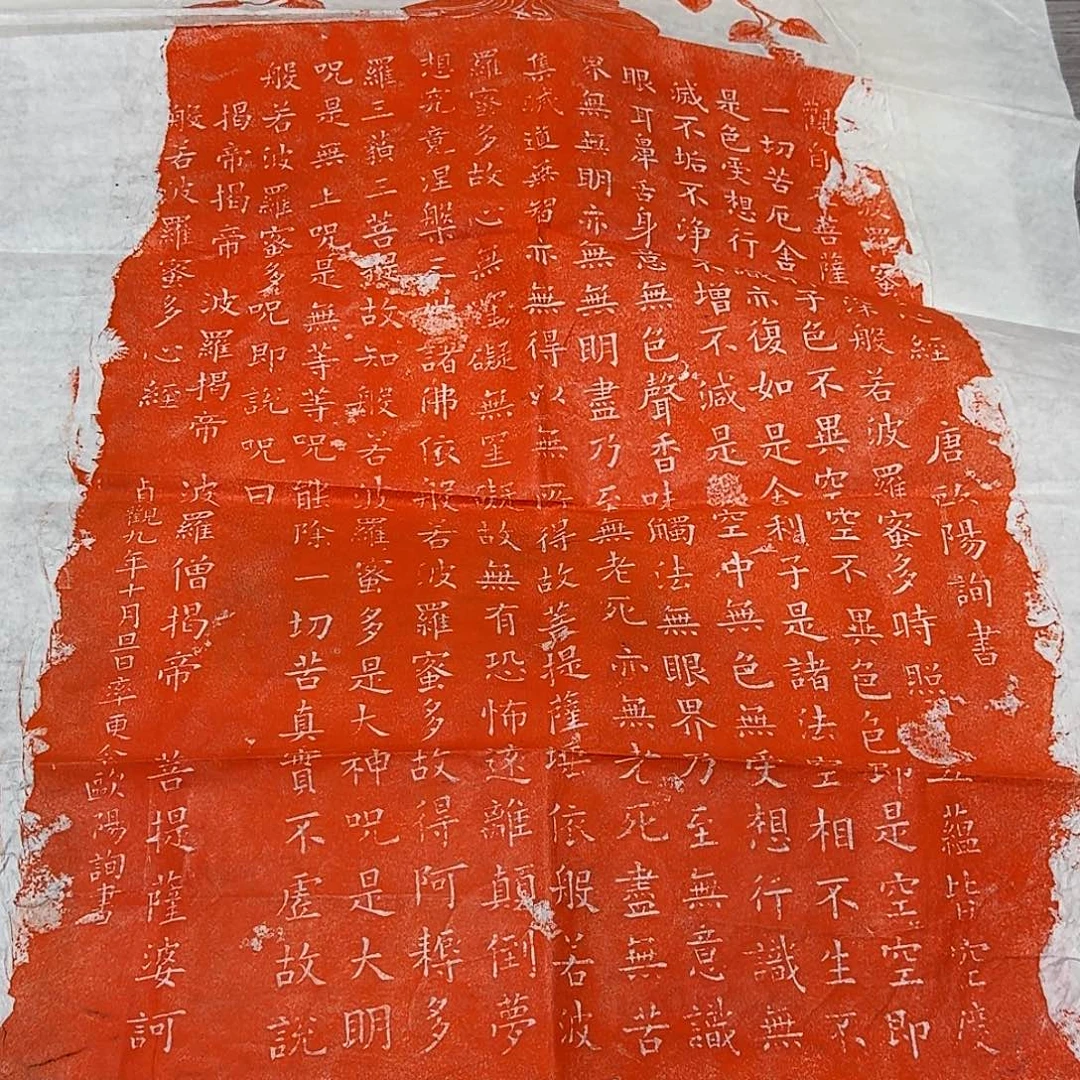 波羅蜜 心經 唐歐陽詢書
觀自 菩薩 深般若波羅蜜多時照 五蘊皆空度
一切苦厄舍 子色不異空空不異色色即是空空即
是色受想行識亦復如是舍利子是諸法空相不生不
滅不垢不淨不增不減是 空中無色無受想行識無
眼耳鼻舌身意無色聲香味觸法無眼界乃至無意識
界無無明亦無無明盡乃至無老死亦無老死盡無苦
集滅道無智亦無得以無所得故菩提薩埵依般若波
羅蜜多故心無罣礙無罣礙故無有恐怖遠離顛倒夢
想究竟涅槃三世諸佛依般若波羅蜜多故得阿耨多
羅三藐三菩提故知般若波羅蜜多是大神呪是大明
呪是無上呪是無等等呪能除一切苦真實不虛故說
般若波羅蜜多呪即說呪曰
揭帝揭帝 波羅揭帝 波羅僧揭帝 菩提薩婆訶
般若波羅蜜多心經
貞觀九年十月旦日率更令歐陽詢書